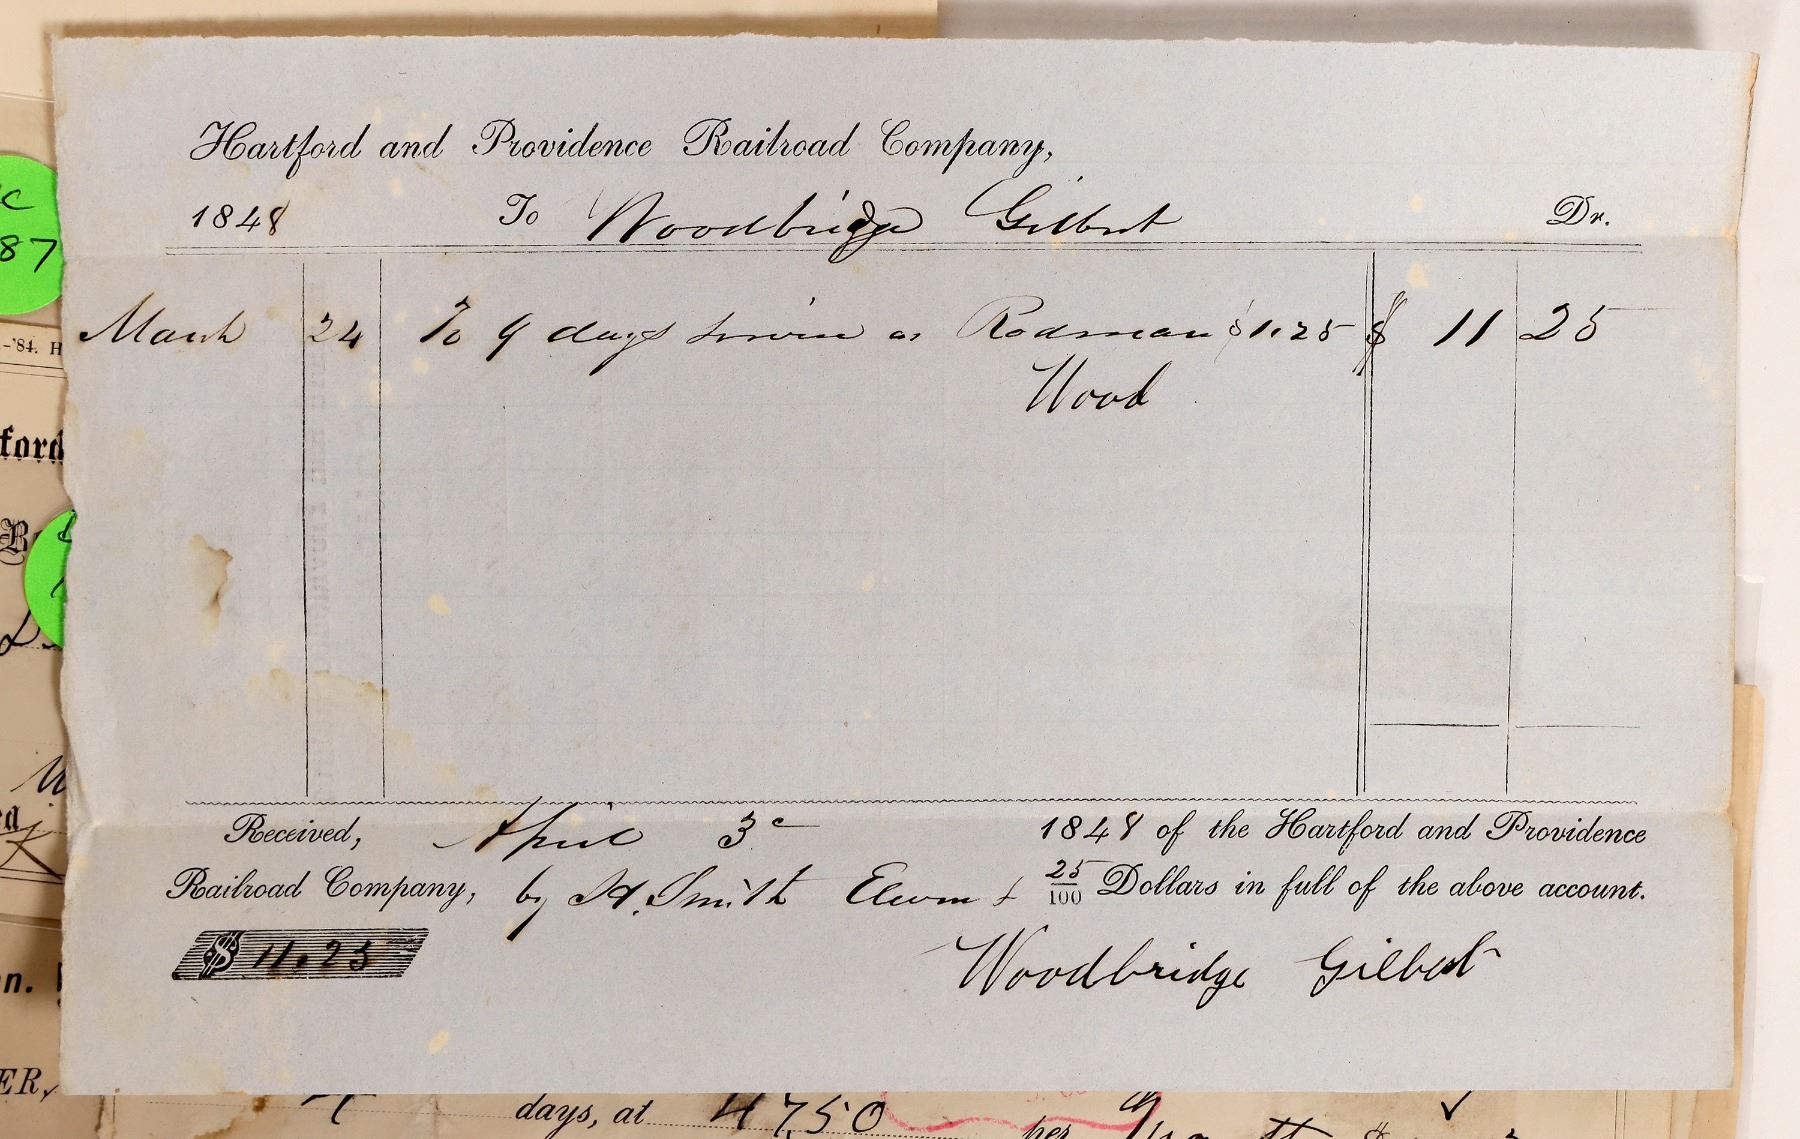 Hartford and Providence Railroad Company,
1848 To Woodbridge Gilbert Dr.
March 24 To 9 days service as Rodman $1.25 $ 11 25
Wood
Received, April 3 1848 of the Hartford and Providence
Railroad Company, by A. Smith Eleven & 25/100 Dollars in full of the above account.
$ 11.25
Woodbridge Gilbert
C
87
-'84. H
ford
n.
ER,
days, at 47,50
per